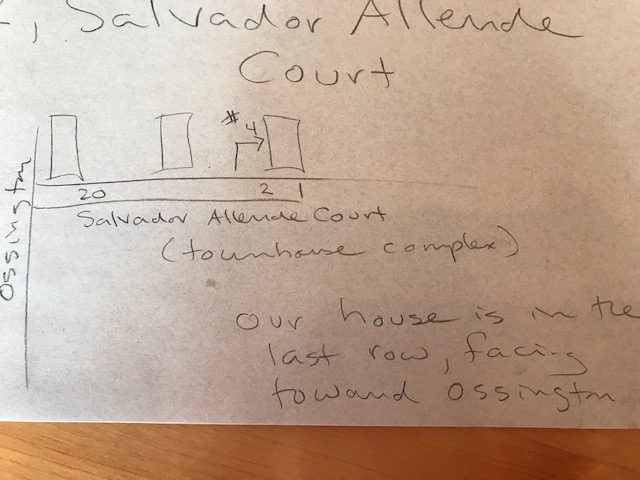 Salvador Allende
Court
#4
20 2 1
Ossington
Salvador Allende Court
(townhouse complex)
our house is in the
last row, facing
toward Ossington